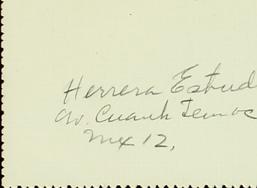 Herrera Estud
Av. Cuauhtemoc
Mex 12,